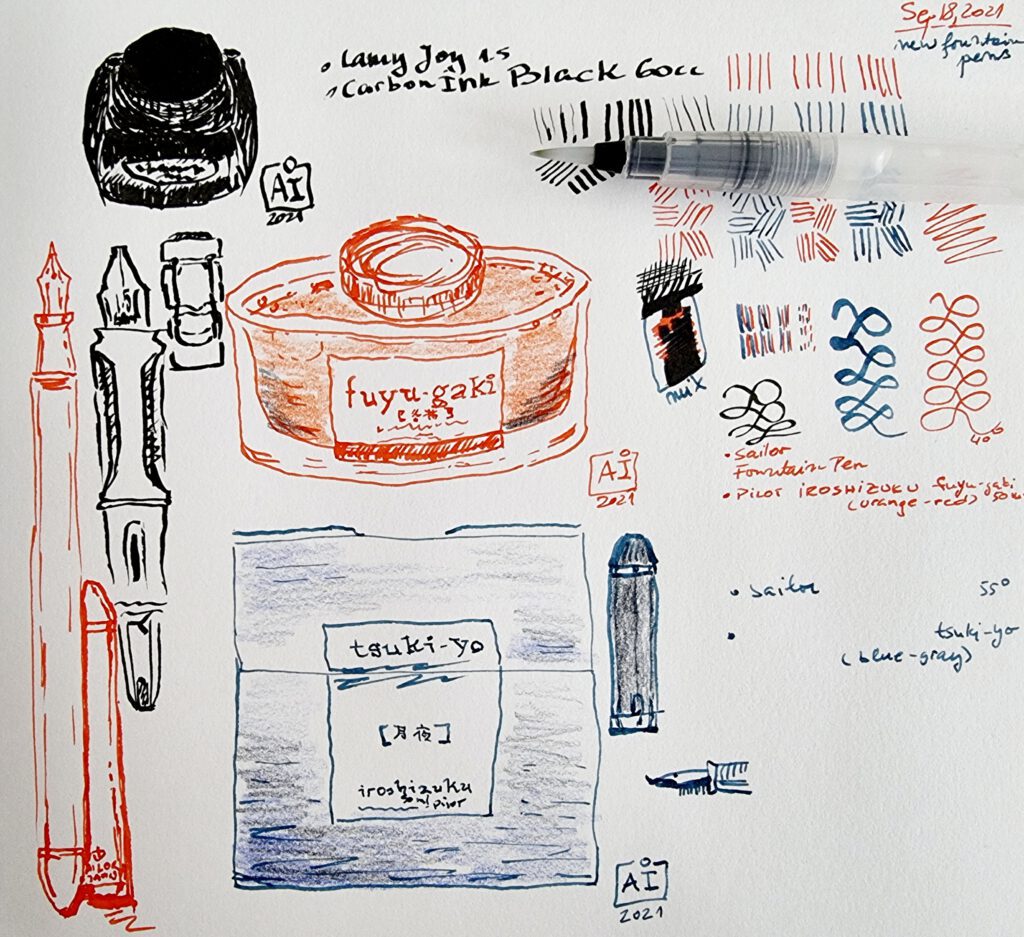 Sep 18, 2021
new fountain
pens
• Lamy Joy 1.5
• Carbon Ink Black 60cc
AI
2021
fuyu-gaki
AI
2021
mix
40°
• Sailor
Fountain Pen
• PILOT IROSHIZUKU fuyu-gaki
(orange-red) 50
• Sailor 55°
• tsuki-yo
(blue-gray)
tsuki-yo
[月夜]
iroshizuku
50ml pilot
AI
2021